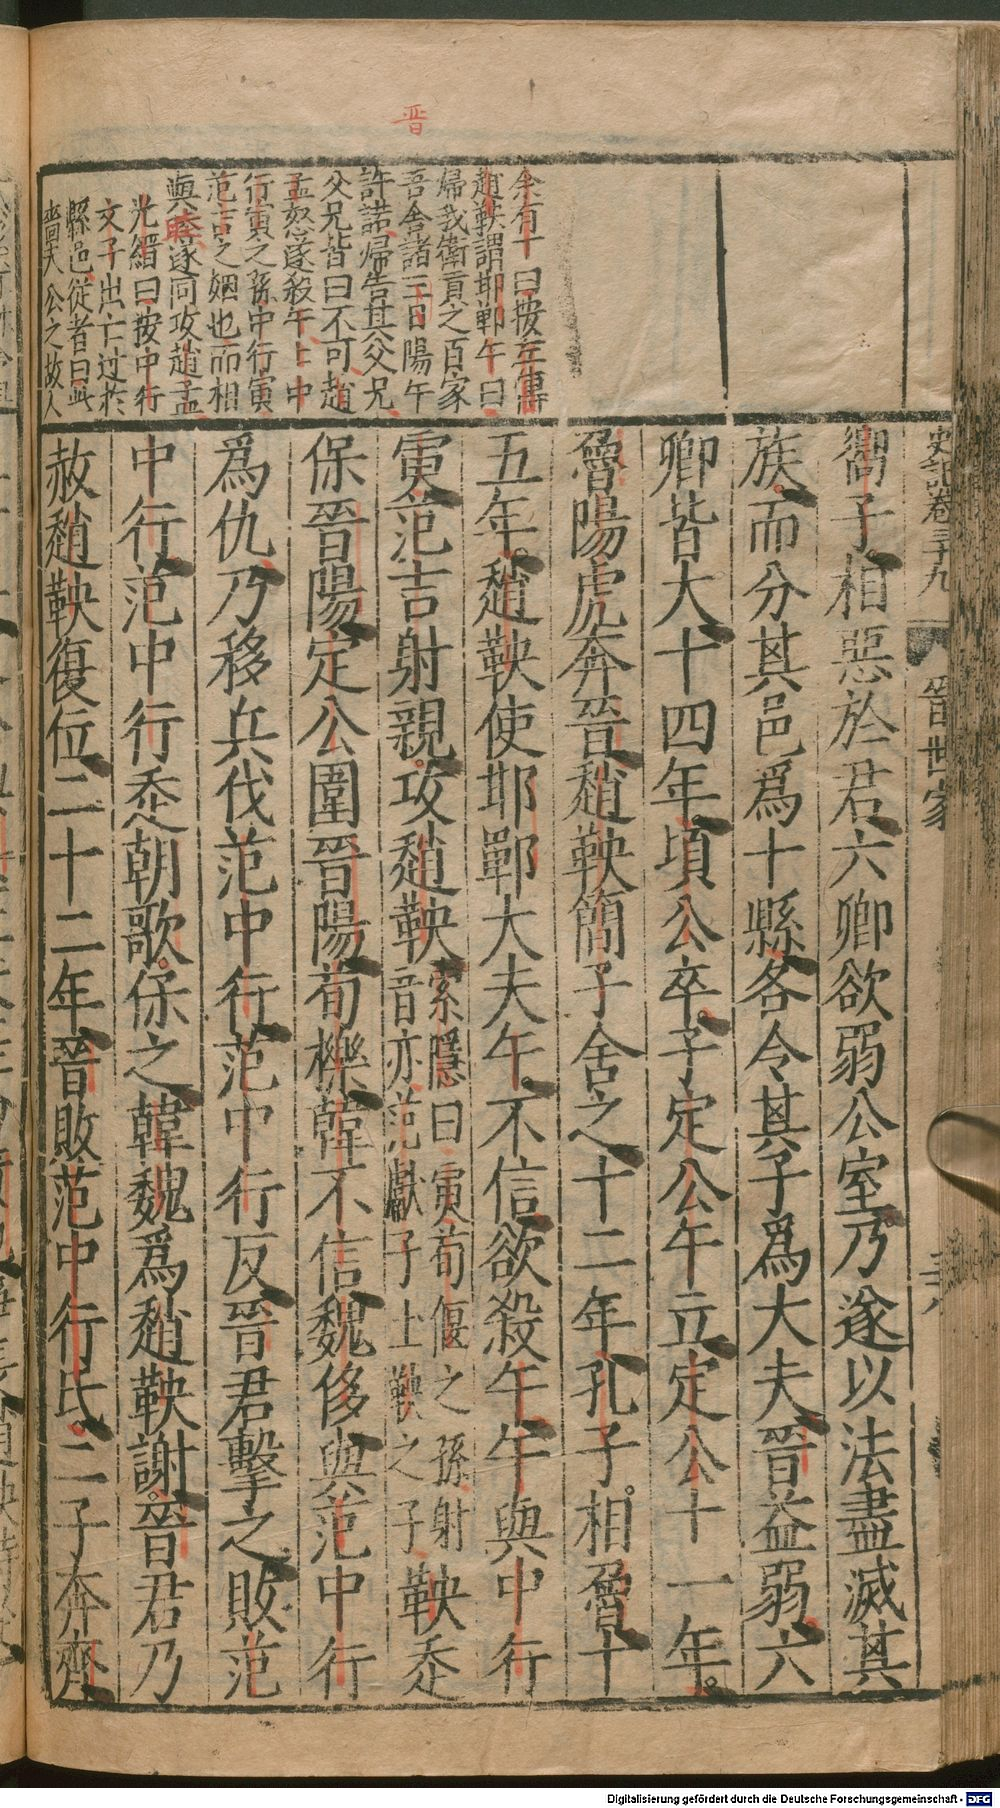 史記卷三十九　晉世家　三十八
晉
嚮子相惡於君六卿欲弱公室乃遂以法盡滅其
族而分其邑爲十縣各令其子爲大夫晉益弱六
卿皆大十四年頃公卒子定公午立定公十一年
魯陽虎奔晉趙鞅簡子舍之十二年孔子相魯十
五年趙鞅使邯鄲大夫午不信欲殺午午與中行
寅范吉射親攻趙鞅索隱曰寅荀偃之孫射
音亦范獻子士鞅之子鞅走
保晉陽定公圍晉陽荀櫟韓不信魏侈與范中行
爲仇乃移兵伐范中行范中行反晉君擊之敗范
中行范中行走朝歌保之韓魏爲趙鞅謝晉君乃
赦趙鞅復位二十二年晉敗范中行氏二子奔齊
余有丁曰按左傳
趙鞅謂邯鄲午曰
歸我衛貢之百家
吾舍諸晉陽午
許諾歸告其父兄
父兄皆曰不可趙
孟怒遂殺午午中
行寅之孫中行寅
范吉之姻也而相
與睦遂同攻趙孟
光縉曰按中行
文子出亡过於
縣邑從者曰此
嗇夫公之故人
Digitalisierung gefördert durch die Deutsche Forschungsgemeinschaft - DFG